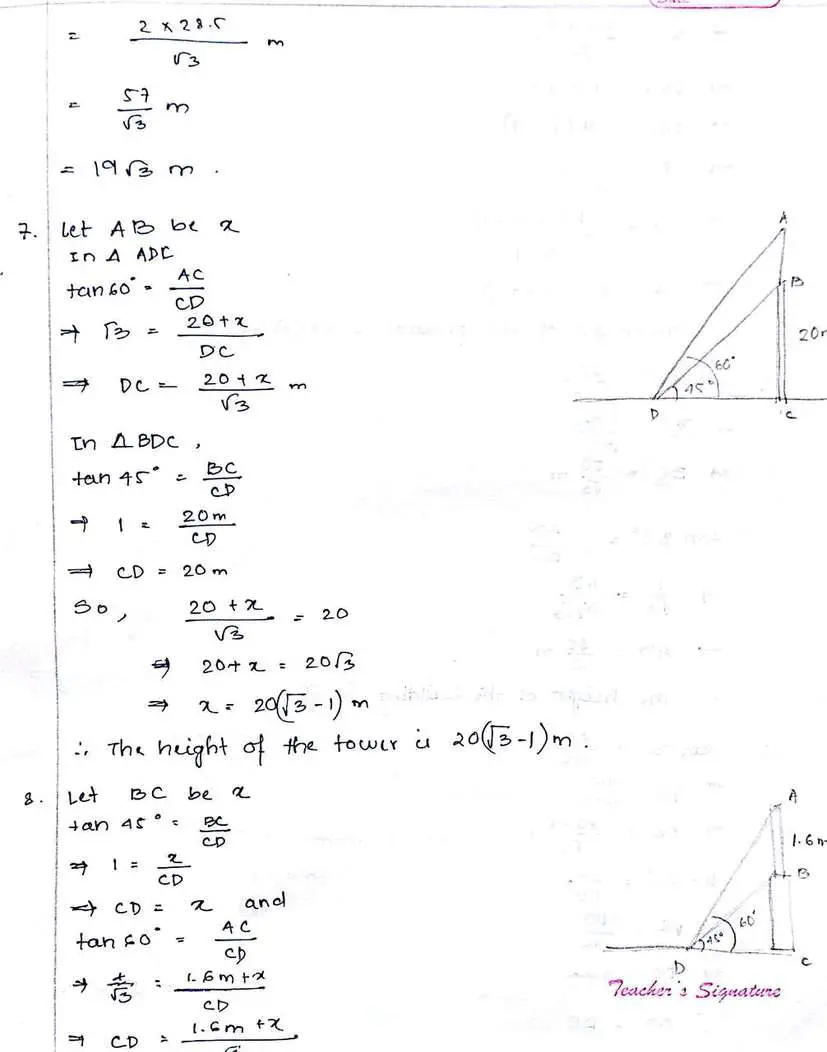 = 2 × 28.5 / √3 m
= 57 / √3 m
= 19√3 m.
7. Let AB be x
In Δ ADC
tan 60° = AC / CD
⇒ √3 = 20 + x / DC
⇒ DC = 20 + x / √3 m
In ΔBDC,
tan 45° = BC / CD
⇒ 1 = 20m / CD
⇒ CD = 20 m
So, 20 + x / √3 = 20
⇒ 20 + x = 20√3
⇒ x = 20(√3 - 1) m
∴ The height of the tower is 20(√3 - 1) m.
A
B
20m
60°
45°
D
C
8. Let BC be x
tan 45° = BC / CD
⇒ 1 = x / CD
⇒ CD = x and
tan 60° = AC / CD
⇒ √3 = 1.6m + x / CD
⇒ CD = 1.6m + x /
A
1.6m
B
60°
45°
D
C
Teacher's Signature